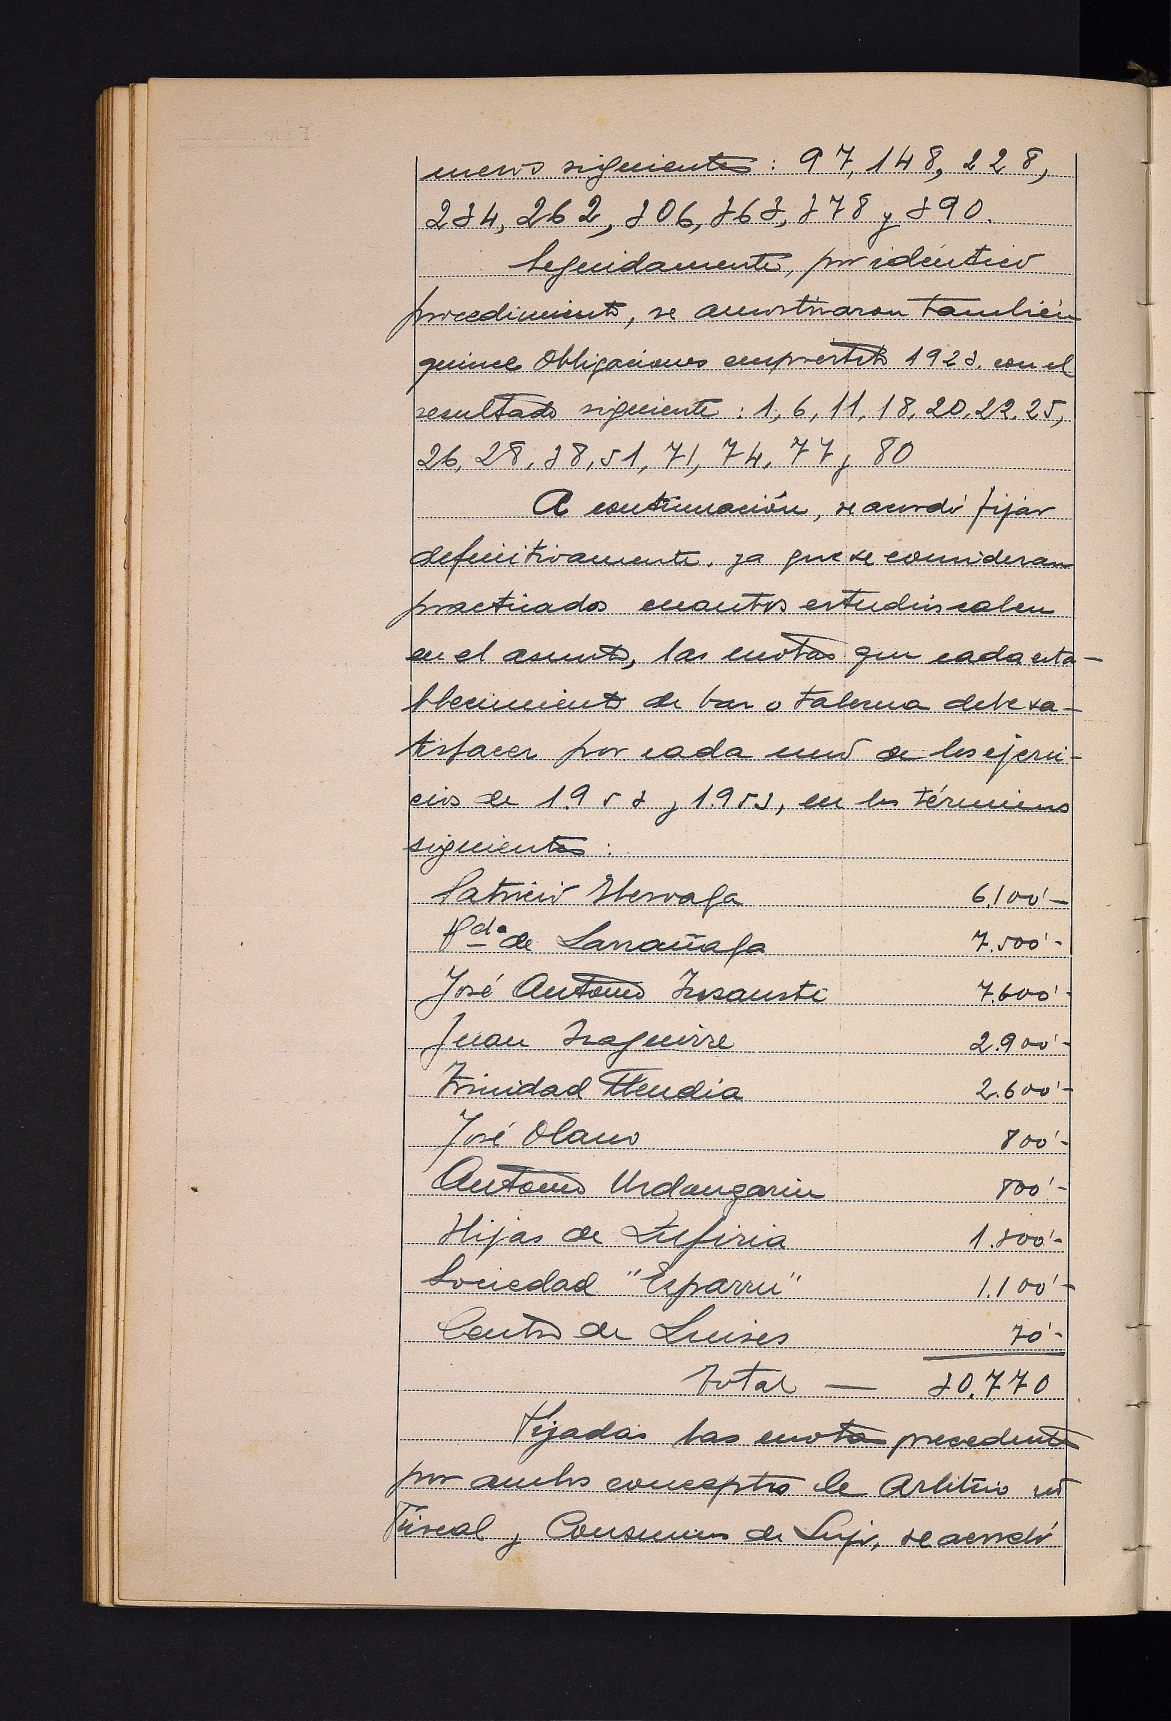 meros siguientes: 97, 148, 228,
234, 262, 306, 363, 378 y 390.
Seguidamente, por idéntico
procedimiento, se amortizaron también
quince Obligaciones empréstito 1923. con el
resultado siguiente: 1, 6, 11, 18, 20, 22, 25,
26, 28, 38, 51, 71, 74, 77 y 80
A continuación, se acordó fijar
definitivamente, ya que se consideran
practicados cuantos estudios caben
en el asunto, las cuotas que cada esta-
blecimiento de bar o taberna debe sa-
tisfacer por cada uno de los ejerci-
cios de 1.953 y 1.953, en los términos
siguientes:
Patricio 6.100'-
Hda de Larrañaga 7.500'-
José Antonio 7.600'-
Juan Izaguirre 2.900'-
Trinidad 2.600'-
José Olano 800'-
Antonio Urdangarin 800'-
Hijas de 1.300'-
Sociedad "Esparru" 1.100'-
Centro de Luises 70'-
Total — 30.770
Fijadas las cuotas precedentes
por ambos conceptos de Arbitrio
Fiscal y Consumos de Lujo, se acordó